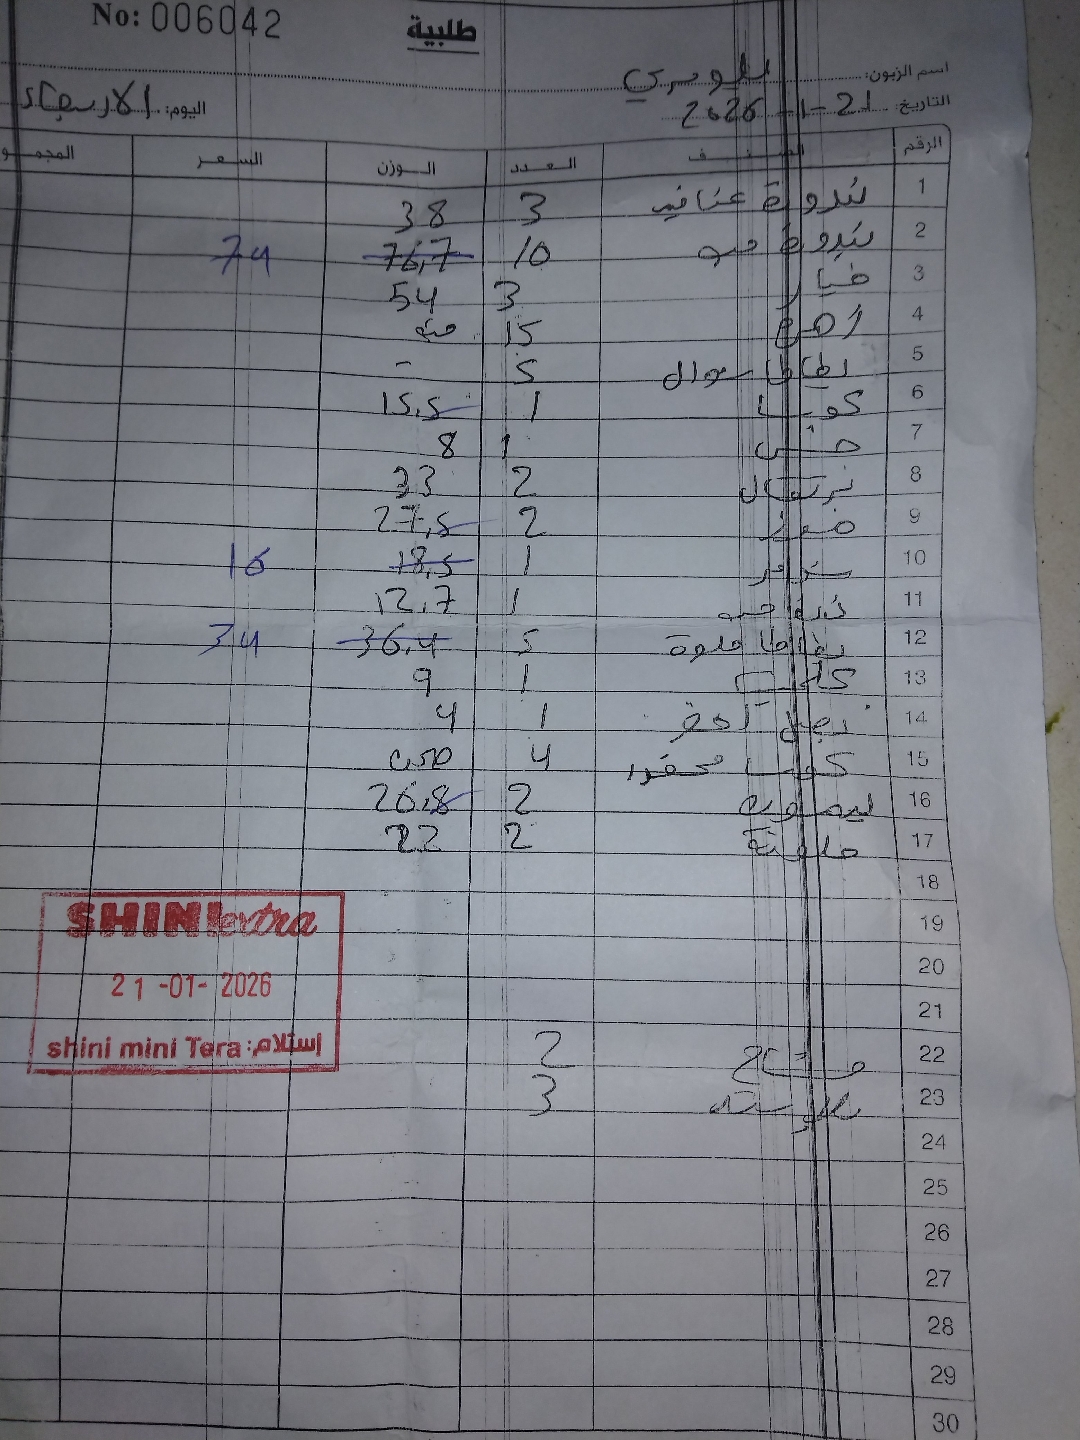 No: 006042
طلبية
اسم الزبون:
التاريخ: 21-1-2026 اليوم: الاربعاء
الرقم الصنف العدد الوزن السعر المجمو
1 بندورة عناقيد 3 38
2 بندورة حب 10 76,7 74
3 خيار 3 54
4 15
5 بطاطا سوال 5 -
6 كوسا 1 15,5
7 خس 1 8
8 برتقال 2 33
9 موز 2 27,5
10 1 18,5 16
11 ذرة حب 1 12,7
12 بطاطا حلوة 5 36,4 34
13 1 9
14 بصل اخضر 1 4
15 كوسا محفور 4 0,50
16 ليمون 2 26,8
17 2 22
18
19
20
21
22 2
23 3
24
25
26
27
28
29
30
SHINI extra
21 -01- 2026
shini mini Tera :إستلام